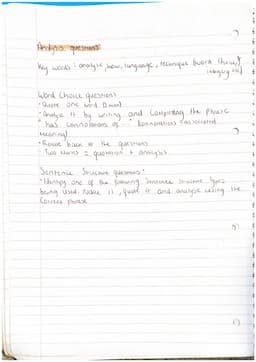 Analysis questions
Key words: analyse, how, language, technique (word choice,
imagery etc)
Word Choice questions
• Quote one word (1 mark)
• Analyse it by writing and completing the phrase
"has connotations of ..." (connotations = associated
meaning)
• Relate back to the questions
• Two marks = quotation + analysis
Sentence Structure questions
• Identify one of the following sentence structure types
being used. Name it, quote it and analyse using the
correct phrase